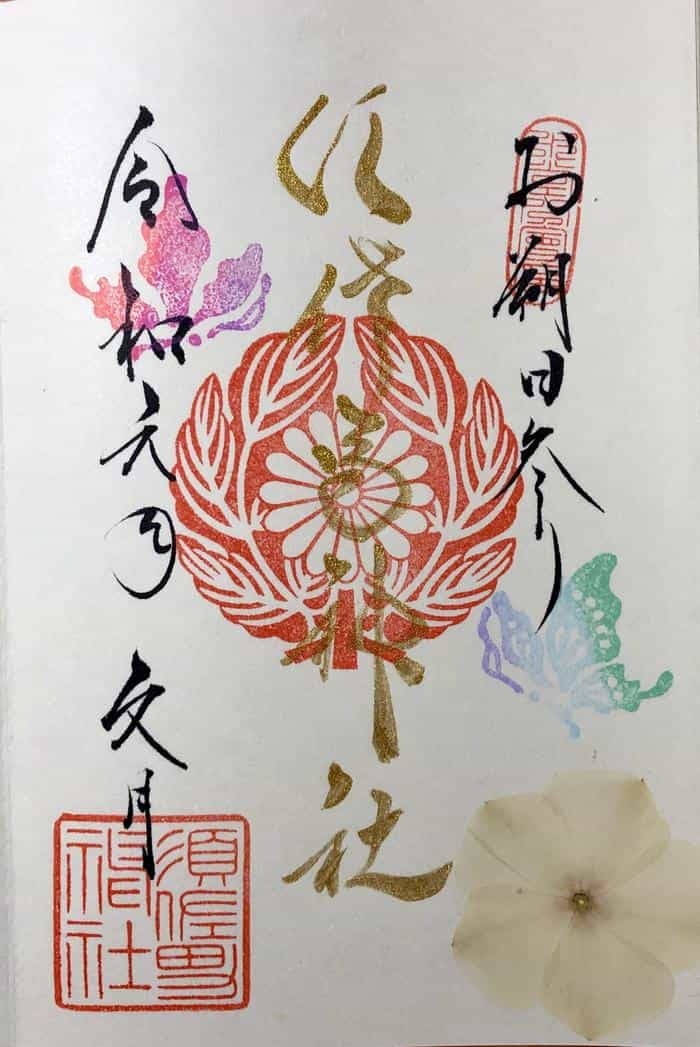 お朔日参り
須佐男神社
令和元年 文月
須佐男
神社